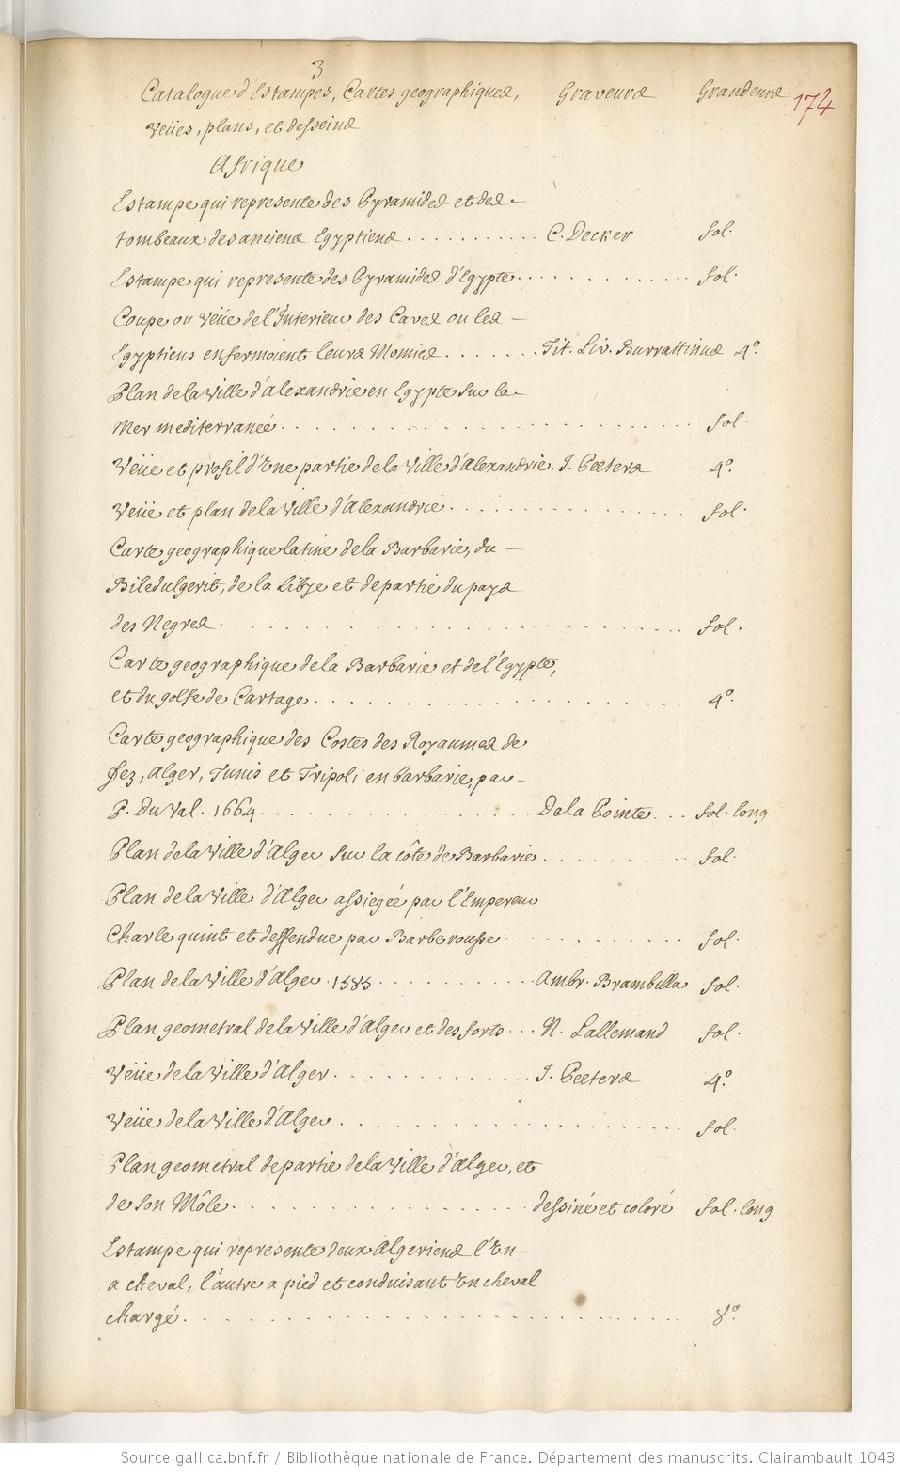 3
Catalogue d'Estampes, Cartes geographiques, Graveurs Grandeurs 174
Veües, plans, et desseins
Afrique
Estampe qui represente des Pyramides et des
tombeaux des anciens Egyptiens . . . . . . . . . . . C. Decker fol.
Estampe qui represente des Pyramides d'Egypte . . . . . . . . . . . . . fol.
Coupe ou veüe de l'Interieur des Caves ou les
Egyptiens enfermoient leurs Momies . . . . . . . Tit. Liv. Burrattinus 4°.
Plan de la Ville d'Alexandrie en Egypte sur la
Mer mediterranée . . . . . . . . . . . . . . . . . . . . . . . . fol.
Veüe et profil d'Une partie de la Ville d'Alexandrie. J. Peeters 4°.
Veüe et plan de la Ville d'Alexandrie . . . . . . . . . . . . . fol.
Carte geographique latine de la Barbarie, du
Biledulgerit, de la Libye et de partie du pays
des Negres . . . . . . . . . . . . . . . . . . . . . . . . fol.
Carte geographique de la Barbarie et de l'Egypte,
et du golfe de Cartage . . . . . . . . . . . . . . . . . . . 4°.
Carte geographique des Costes des Royaumes de
Fez, Alger, Tunis et Tripoli en barbarie, par
P. Du Val. 1664 . . . . . . . . . . . . . . Dela Pointe . . . fol. long
Plan de la Ville d'Alger sur la côte de Barbarie . . . . . . . . . fol.
Plan de la Ville d'Alger assiegée par l'Empereur
Charle quint et deffendue par Barberousse . . . . . . . . . . . fol.
Plan de la Ville d'Alger . 1585 . . . . . . . . . . . Ambr. Brambilla fol.
Plan geometral de la Ville d'Alger et des forts . . . N. Lallemand fol.
Veüe de la Ville d'Alger . . . . . . . . . . . J. Peeters 4°.
Veüe de la Ville d'Alger . . . . . . . . . . . . . . . . . . fol.
Plan geometral de partie de la Ville d'Alger, et
de son Môle . . . . . . . . . . . . . . . . . dessiné et coloré fol. long
Estampe qui represente deux Algeriens l'Un
a cheval, l'autre a pied et conduisant Un cheval
chargé . . . . . . . . . . . . . . . . . . . . . . . . . . 8°.
Source gallica.bnf.fr / Bibliothèque nationale de France. Département des manuscrits. Clairambault 1043